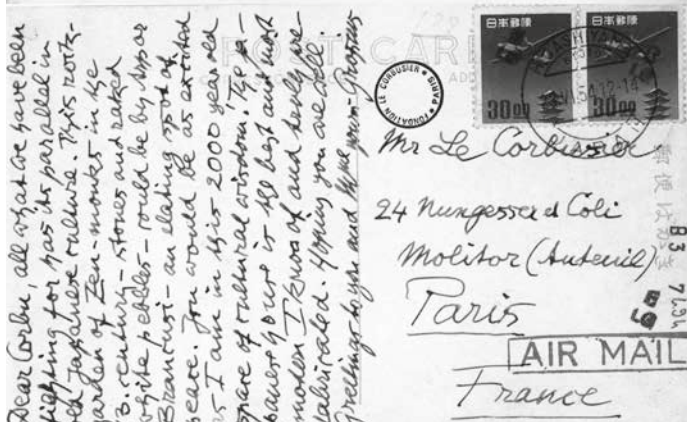 Dear Corbu, all what we have been
fighting for has its parallel in
old Japanese culture. This rock-
garden of Zen-monks in the
13. century - stones and raked
white pebbles - could be by Arp or
Brancusi - an elating spot of
peace. You would be as excited
as I am in this 2000 year old
space of cultural wisdom! The Ja-
panese house is the best and most
modern I know of and really pre-
fabricated. Hoping you are well
Greetings to you and
Gropius
POST CARD
FONDATION LE CORBUSIER PARIS
日本郵便
日本郵便
30 00
30 00
Mr Le Corbusier
24 Nungesser et Coli
Molitor (Auteuil)
Paris
AIR MAIL
France
郵便はがき
B3